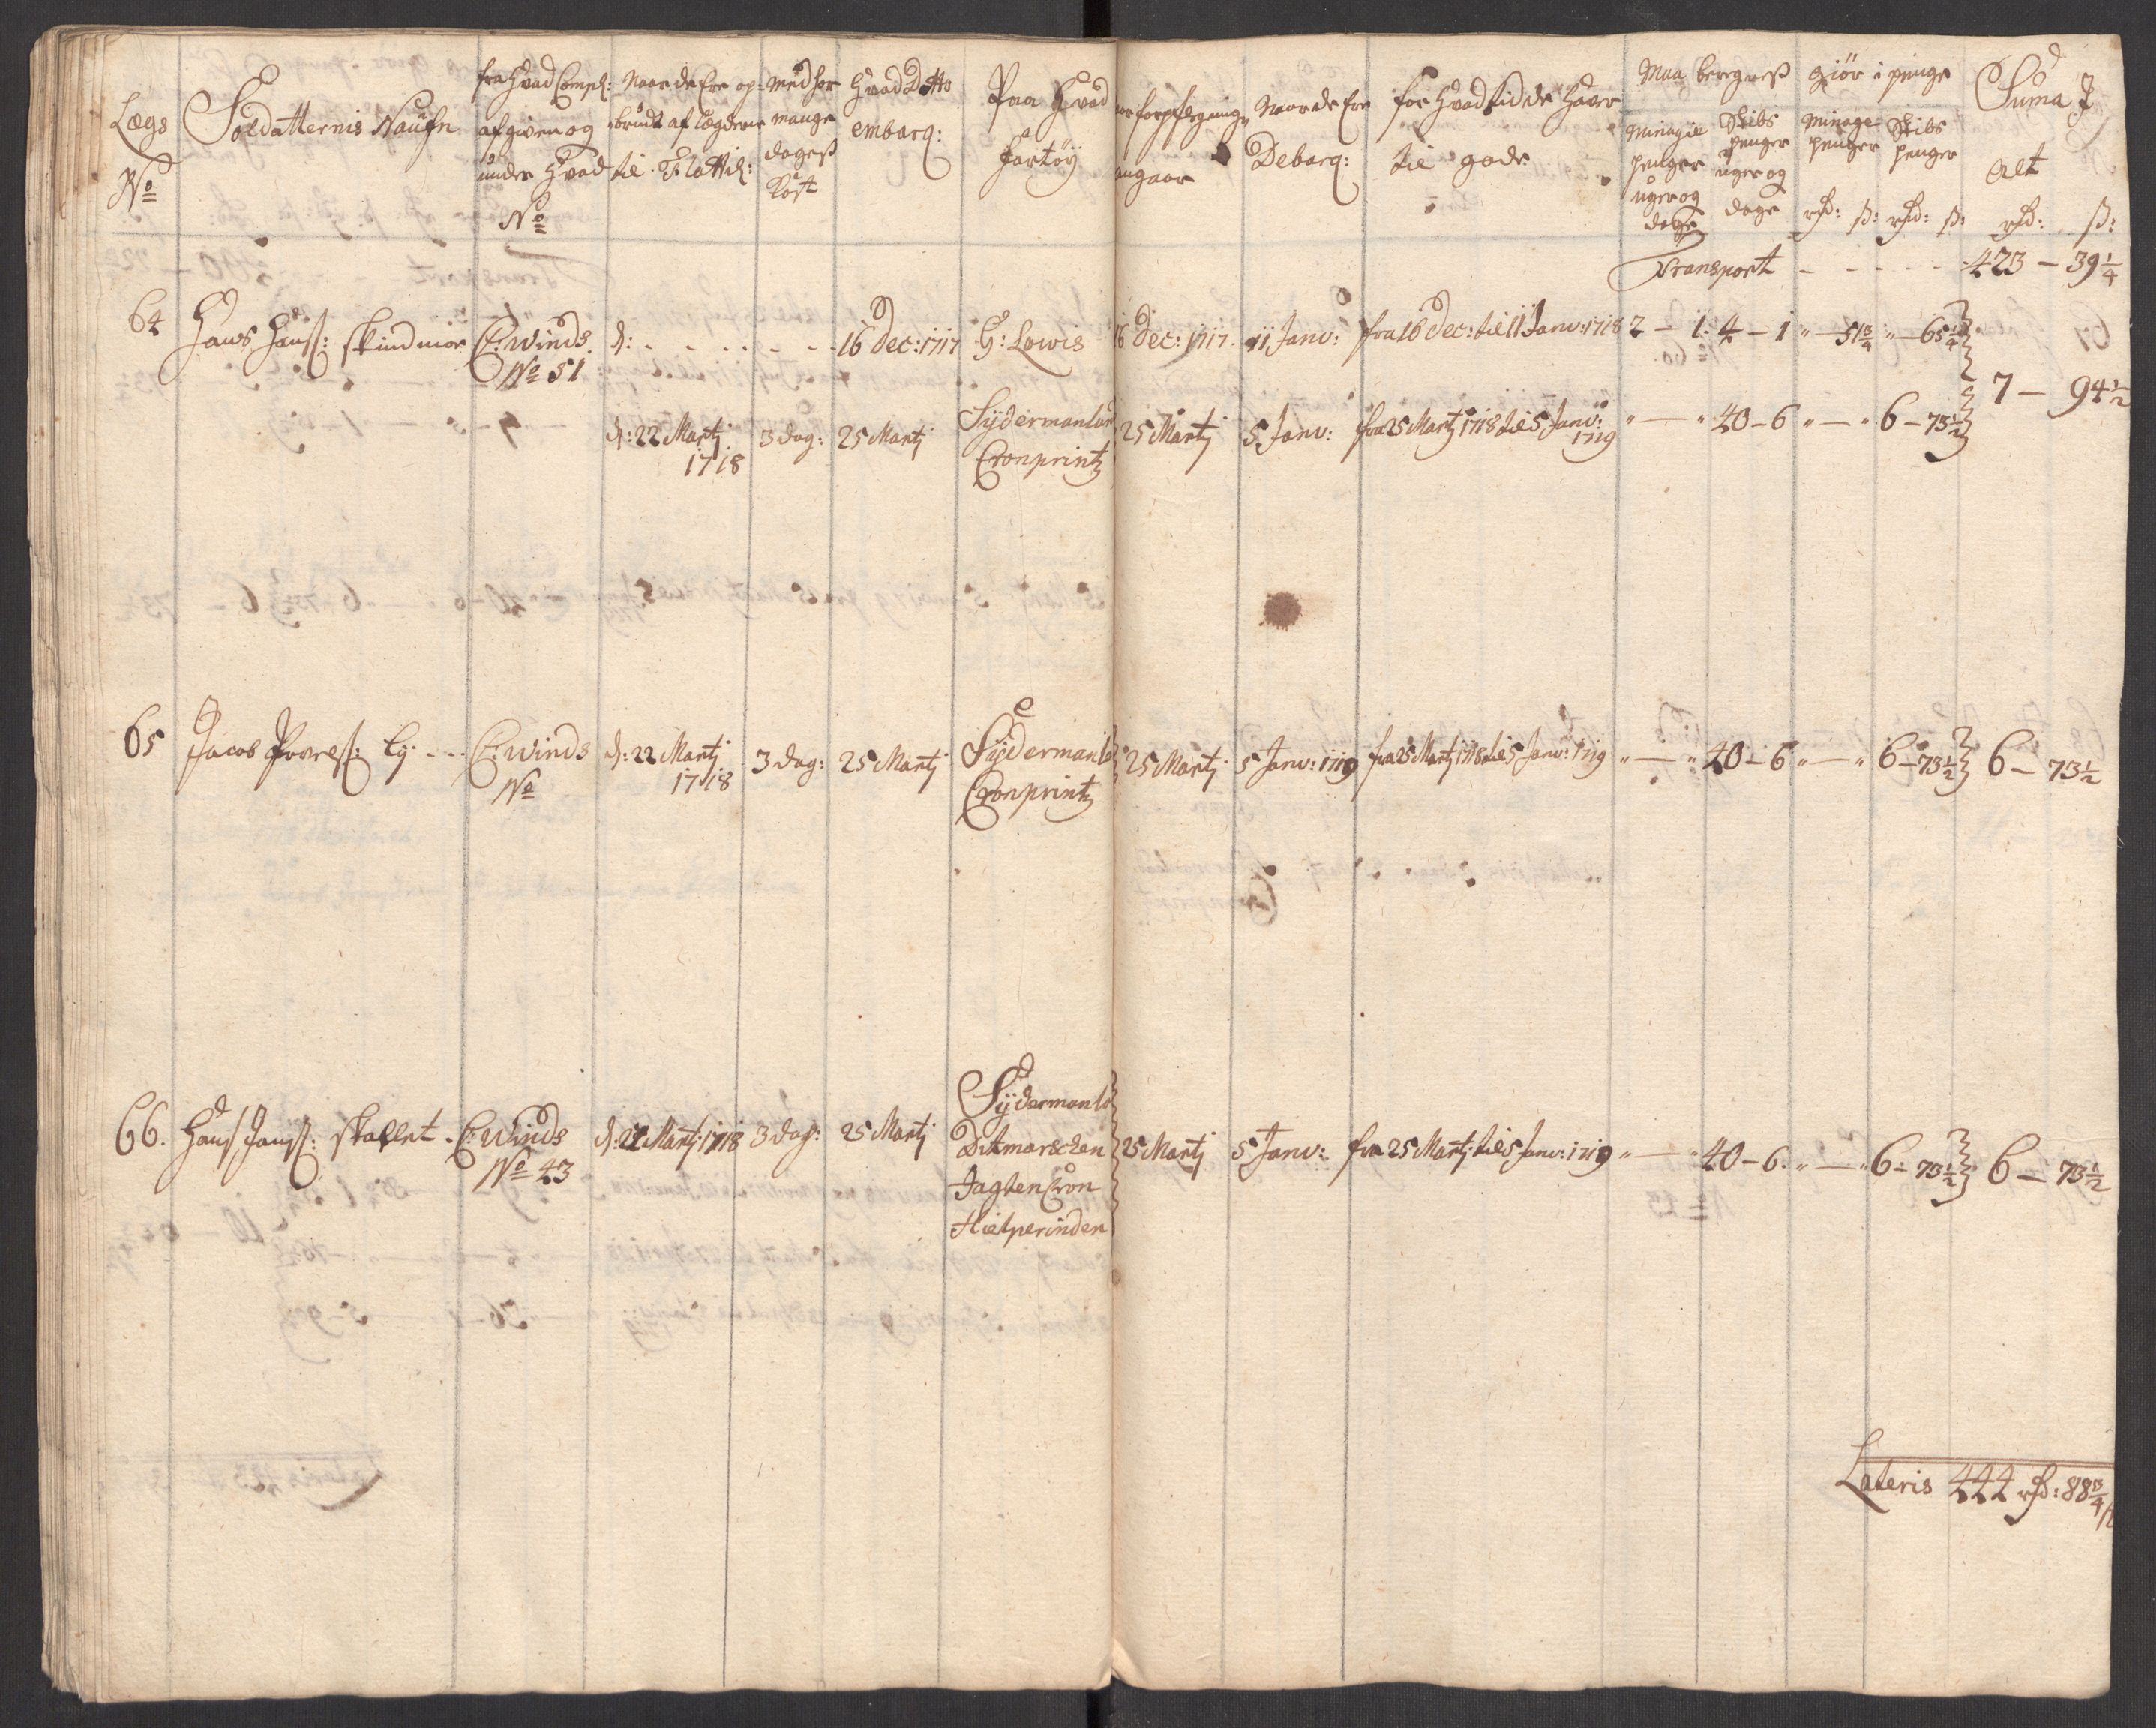 Lægs
No
Soldatternis Naufn
fra hvad Comp:
afgiven og
under hvad
No
Naar de ere op-
brudt af lægderne
til Flottil:
med for
mange
dages
Kost
hvad Datto
embarq:
Paa hvad
fartøy
forpflegning
angaar
Naar de ere
Debarq:
for hvad tid de haver
til gode
Maa beregnes
Minagie
penger
uger og
dage
Skibs
penger
uger og
dage
giör i penge
Minage
penger
rd: ß:
Skibs
penger
rd: ß:
Suma J
alt
rd: ß:
Transport - - - - - 423 – 39 1/4
64 Hans Hanß: skindmoe C: Winds. d: - - - - - - 16 Dec: 1717 H: Lowis 16 Dec: 1717. 11 Janv: fra 16 Dec: til 11 Janv: 1718 2 – 1. 4 – 1 " – 51 3/4 " – 65 1/4
No 51
7 – 94 1/2
d: 22 Martj 3 dag: 25 Martj Sÿdermanland 25 Martj 5 Janv: fra 25 Martj 1718 til 5 Janv: " – " 40 – 6 " – " 6 – 73 1/2
1718 Cronprintz 1719
65 Jacob Povelß: Ly - - C: Winds d: 22 Martj 3 dag: 25 Martj Sÿdermanla 25 Martj 5 Janv: 1719 fra 25 Martj 1718 til 5 Janv: 1719 " – " 40 – 6 " – " 6 – 73 1/2 6 – 73 1/2
No 1718 Cronprintz
66. Hans Janß: skallet - C: Winds d: 22 Martj 1718 3 dag: 25 Martj Sÿdermanla 25 Martj 5 Janv: fra 25 Martj til 5 Janv: 1719 " – " 40 – 6. " – " 6 – 73 1/2 6 – 73 1/2
No 43 Ditmarschen
Jagten Cron
Hielperinden
Lateris 444 rd: 88 3/4 ß